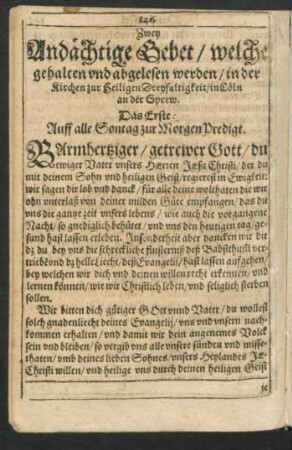 146
Zwey
Andächtige Gebet / welche
gehalten vnd abgelesen werden / in der
Kirchen zur Heiligen Dreyfaltigkeit / in Cöln
an der Sprew.
Das Erste:
Auff alle Sontag zur Morgen Predigt.
BArmhertziger / getrewer Gott / du
ewiger Vater vnsers HErren JEsu Christi / der du
mit deinem Sohn vnd heiligen Geist / regierest in Ewigkeit:
wir sagen dir lob vnd danck / für alle deine wolthaten die wir
ohn vnterlaß von deiner milden Güte empfangen / das du
vns die gantze zeit vnsers lebens / wie auch die vorgangene
Nacht / so gnediglich behütet / vnd vns den heutigen tag / ge-
sund hast lassen erleben. Insonderheit aber dancken wir dir
dz du bey vns die schreckliche finsternuß deß Babsthumb ver-
triebẽ vnd dz helle Liecht / deß Evangelii / hast lassen auffgehen /
bey welchen wir dich vnd deinen willen recht erkennen / vnd
lernen können / wie wir Christlich leben / vnd seliglich sterben
sollen.
Wir bitten dich gütiger GOtt vnnd Vater / du wollest
solch gnadenliecht deines Evangelij / vns vnd vnsern nach-
kommen erhalten / vnd damit wir dein angenemes Volck
sein vnd bleiben / so vergib vns alle vnsere sünden vnd misse-
thaten / vmb deines lieben Sohnes / vnsers Heylandes JE-
Christi willen / vnd heilige vns durch deinen heiligen Geist
je